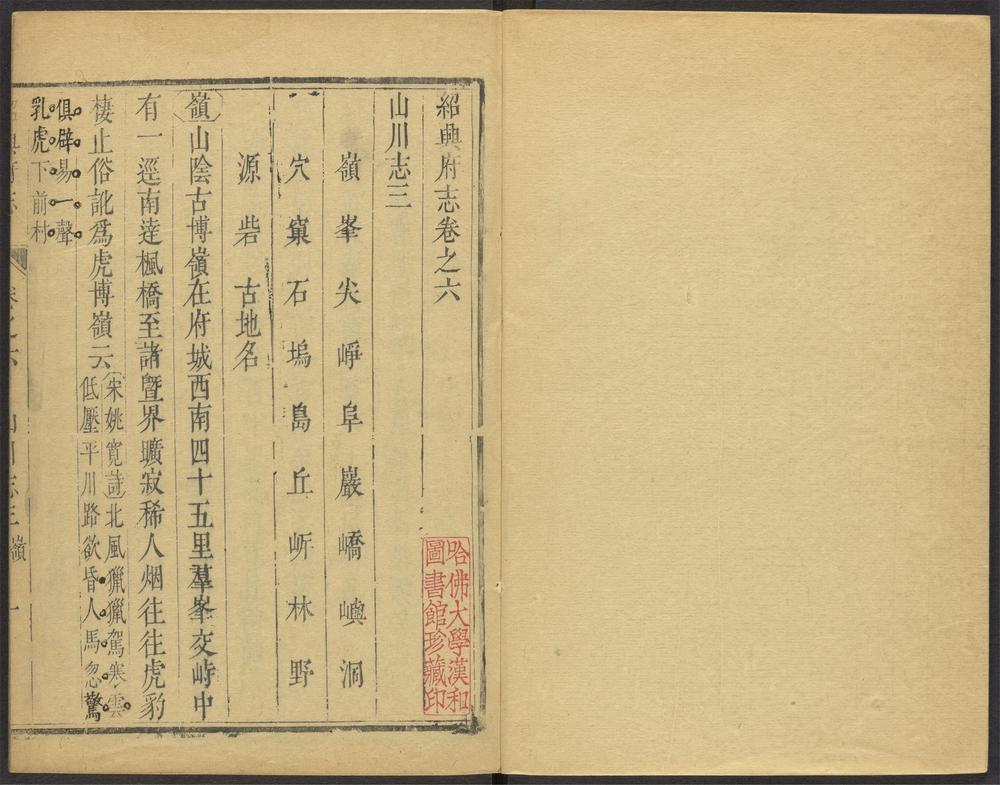 紹興府志卷之六
哈佛大學漢和
圖書館珍藏印
山川志三
嶺峯尖崢阜巖嶠嶼洞
穴窠石塢島丘岓林野
源砦古地名
嶺山陰古博嶺在府城西南四十五里羣峯交峙中
有一逕南達楓橋至諸暨界曠寂稀人烟往往虎豹
棲止俗訛爲虎博嶺云
宋姚寬詩北風獵獵駕寒雲
低壓平川路欲昏人馬忽驚
俱辟易一聲
乳虎下前村
嶺
一